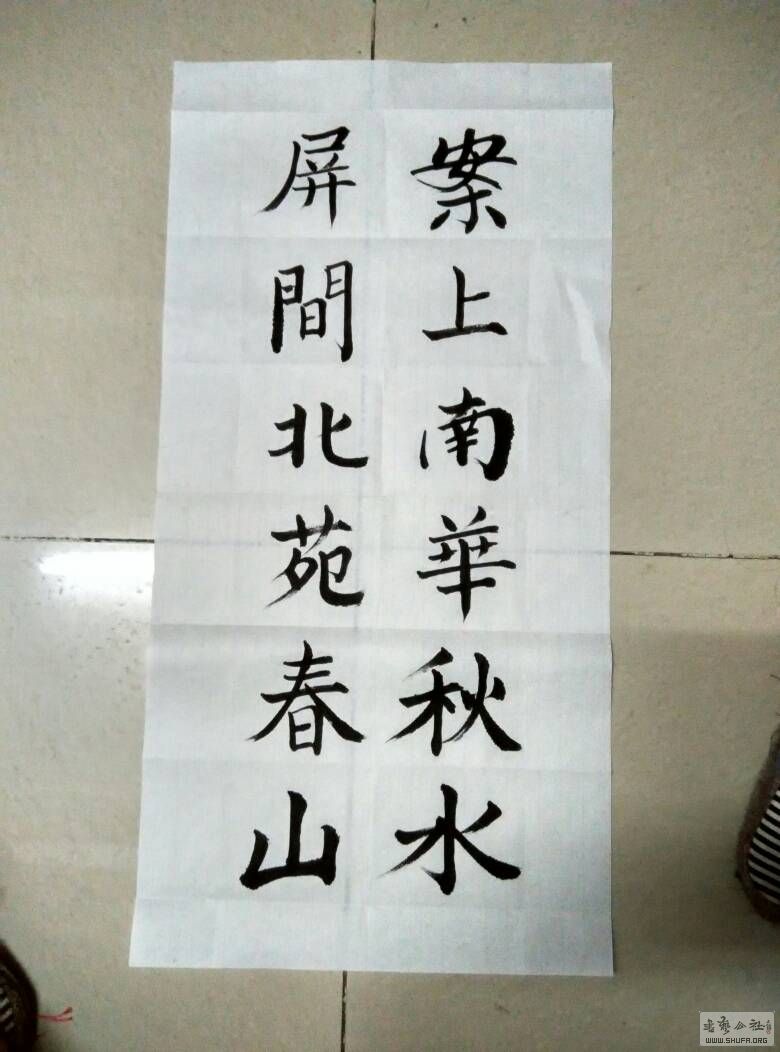 案上南華秋水
屏間北苑春山
WWW.SHUFA.ORG